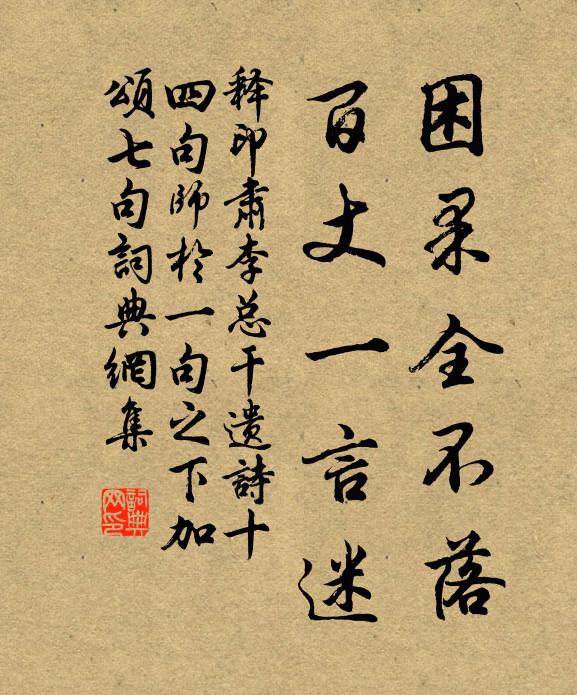 因果全不落
百丈一言迷
释印肃李总干遗詩十
四句師於一句之下加
頌七句詞典網集
詞典
网印